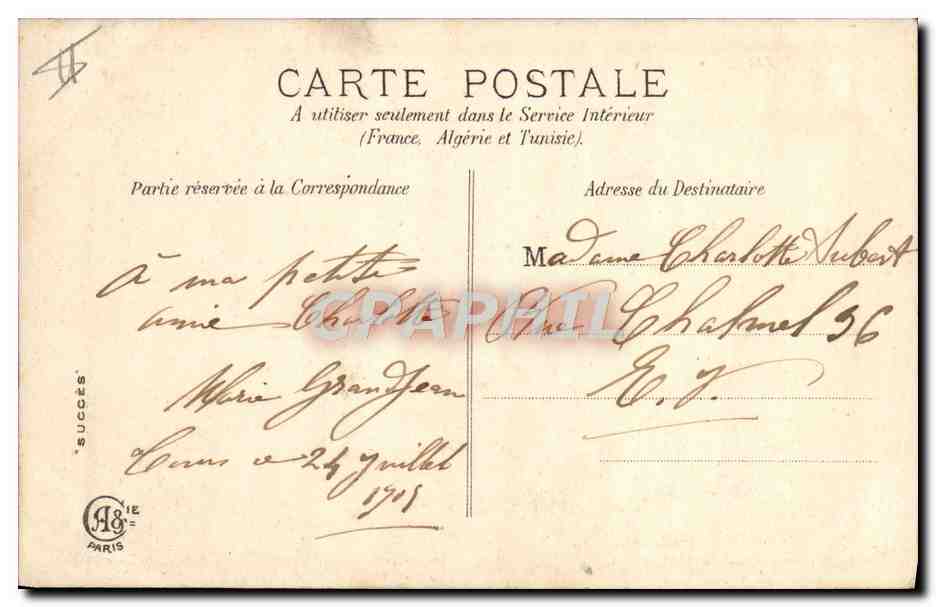 CARTE POSTALE
A utiliser seulement dans le Service Intérieur
(France, Algérie et Tunisie).
Partie réservée à la Correspondance
Adresse du Destinataire
à ma petite
amie Charlotte
Marie Grandjean
Tours le 24 Juillet
Madame Charlotte Aubert
Rue Chalmel 36
E. V.
"SUCCÈS"
CIE
PARIS
CPAPHIL